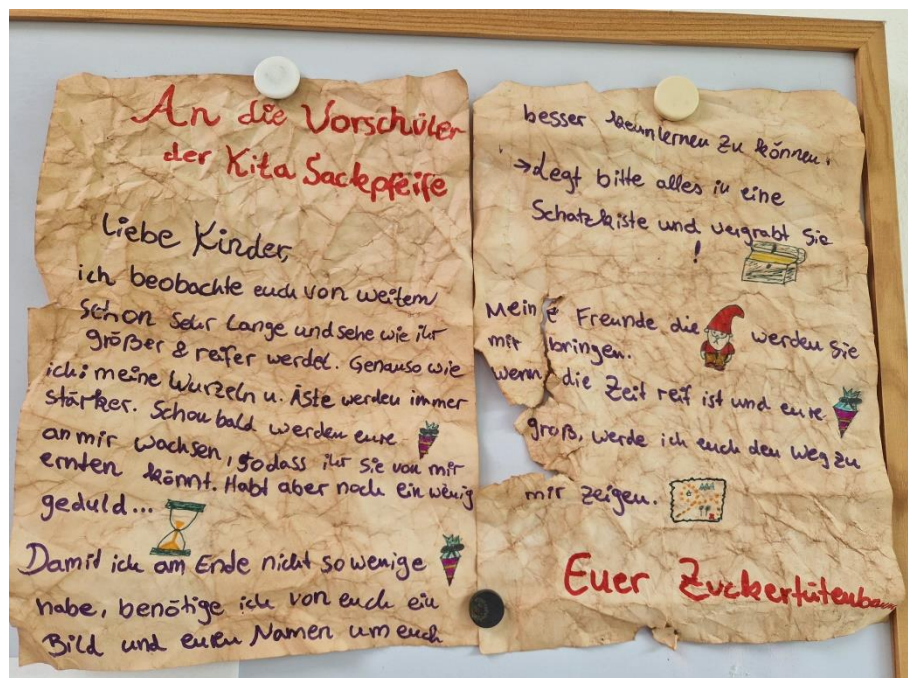 An die Vorschüler
der Kita Sackpfeife
Liebe Kinder,
ich beobachte euch von weitem
schon sehr lange und sehe wie ihr
größer & reifer werdet. Genauso wie
ich: meine Wurzeln u. Äste werden immer
stärker. Schon bald werden eure
an mir wachsen, sodass ihr sie von mir
ernten könnt. Habt aber noch ein wenig
geduld...
Damit ich am Ende nicht so wenige
habe, benötige ich von euch ein
Bild und euren Namen um euch
besser kennlernen zu können.
→ Legt bitte alles in eine
Schatzkiste und vergrabt sie
!
Meine Freunde die werden sie
mir bringen.
wenn die Zeit reif ist und eure
groß, werde ich euch den Weg zu
mir zeigen.
Euer Zuckertütenbaum